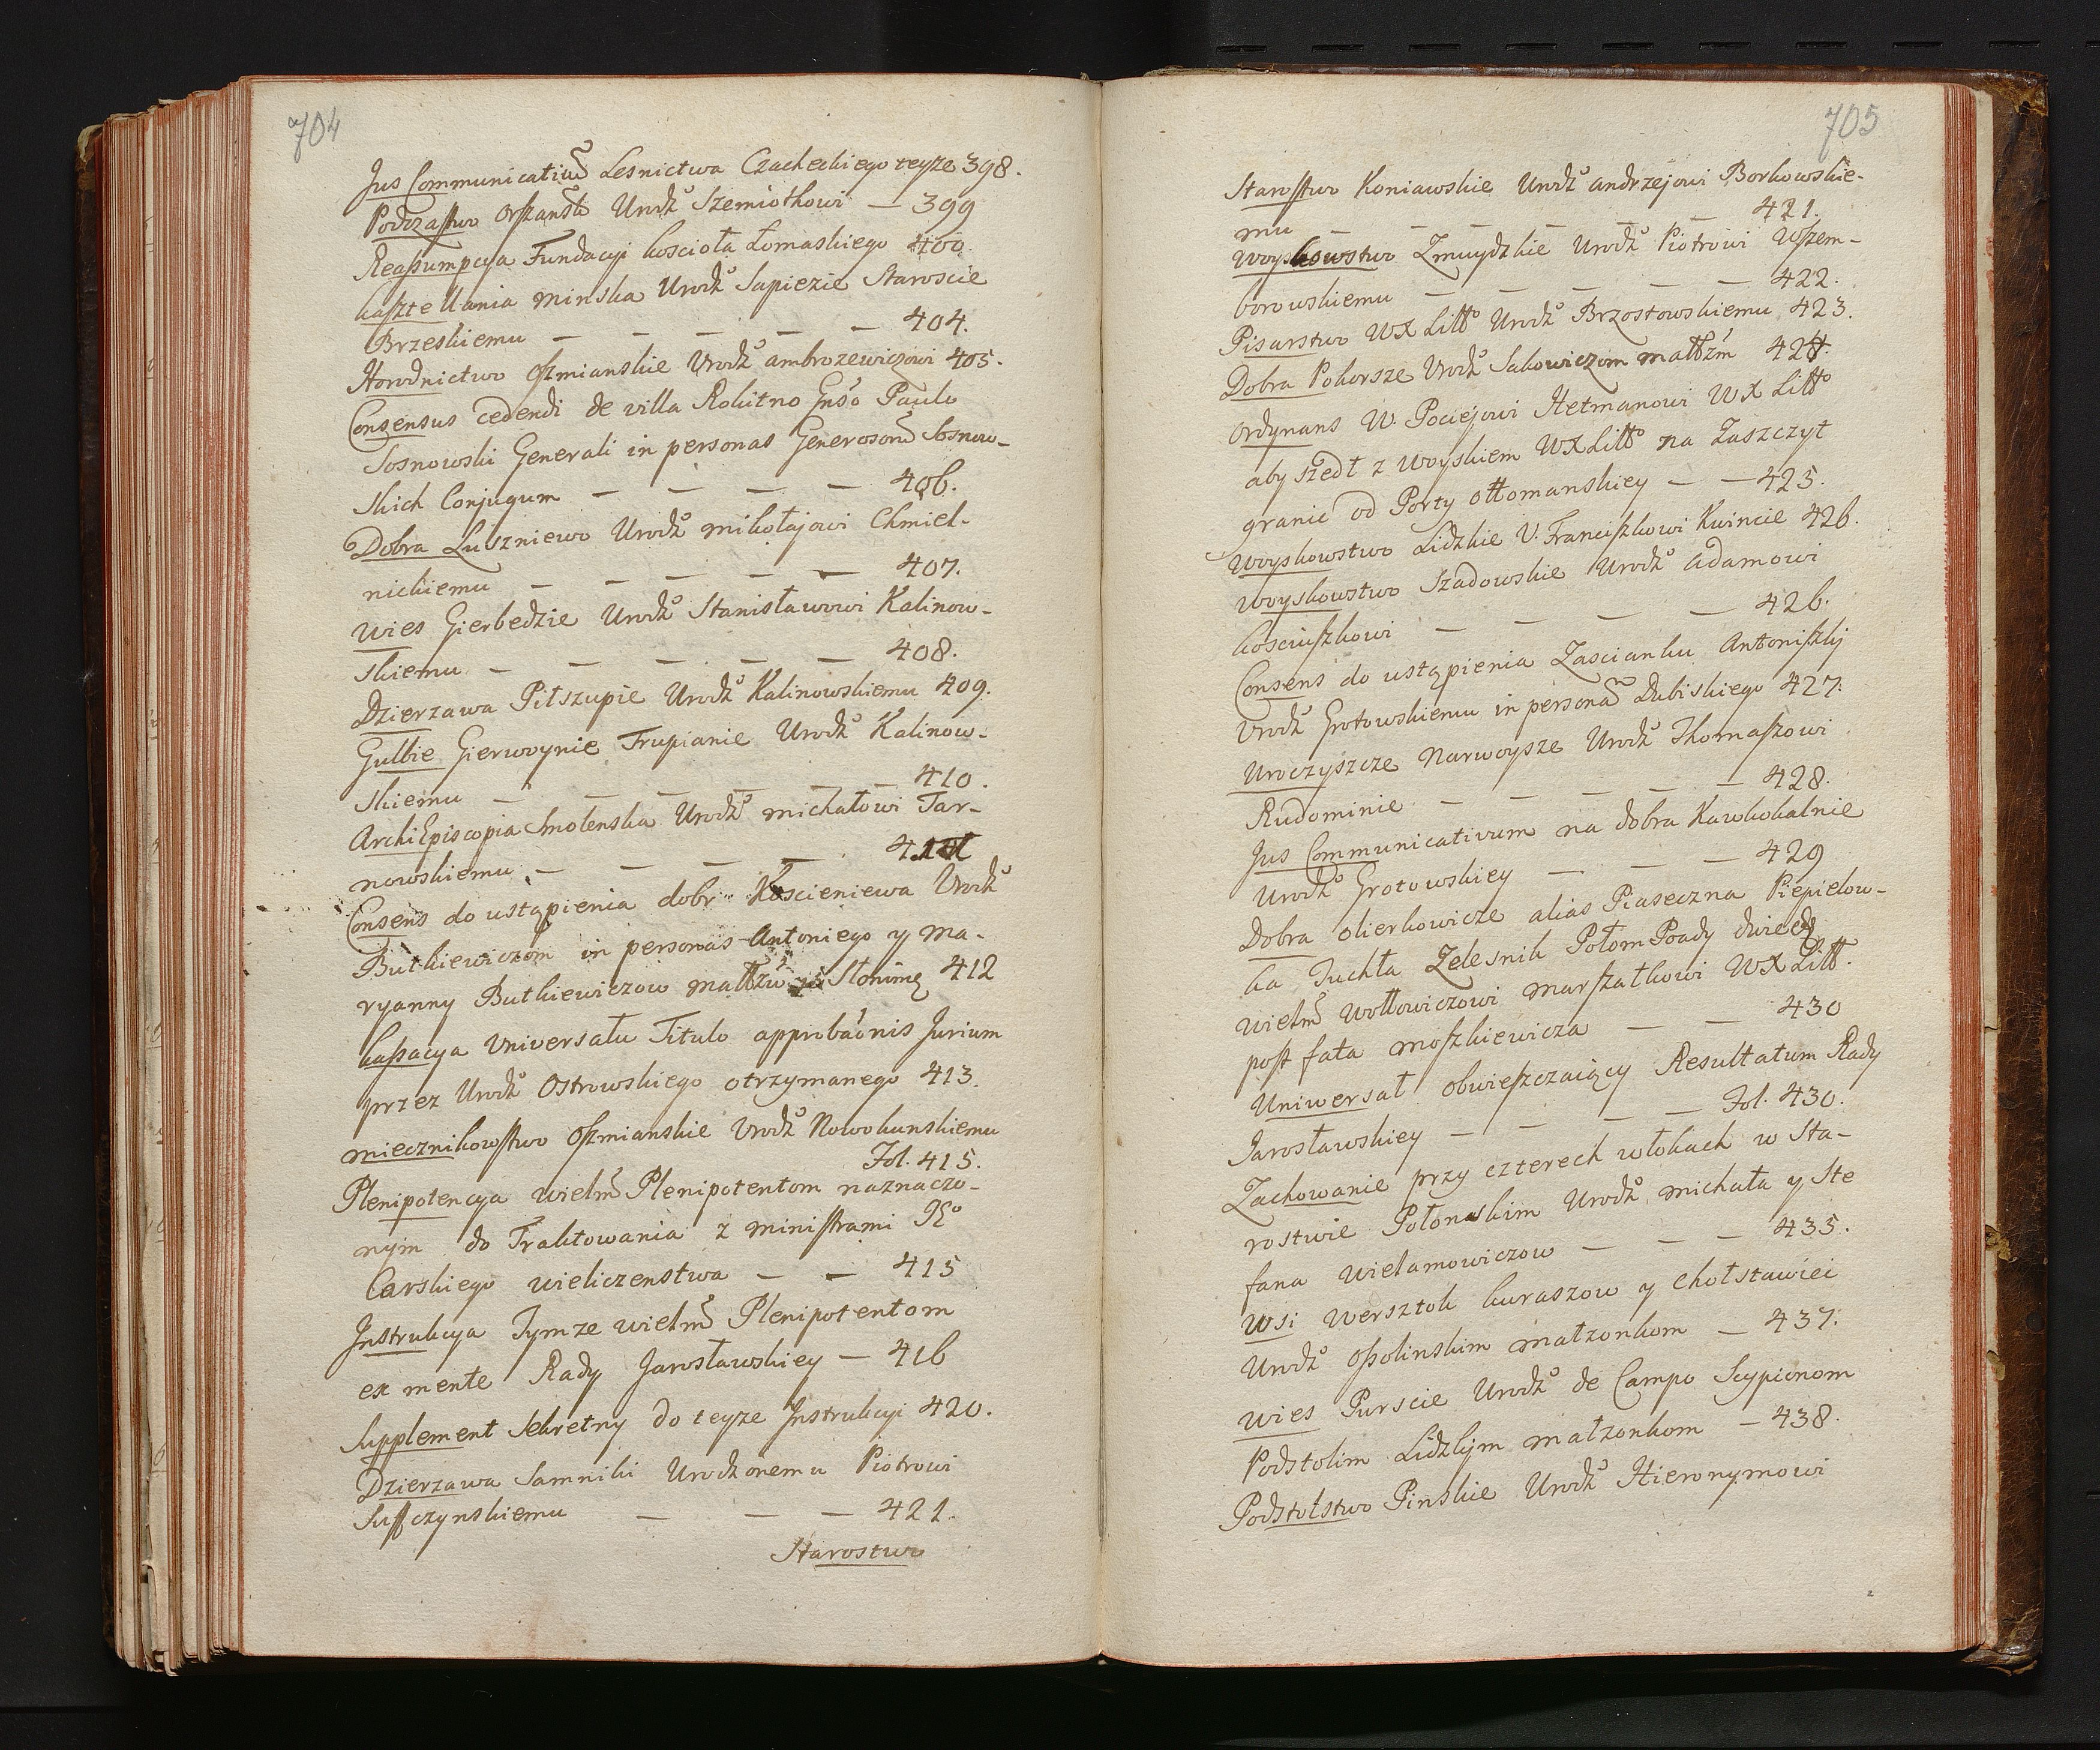 704
Jus Communicativũ Lesnictwa Czacheckiego teyże 398.
Podczastwo Orszanst Urodź Szemiotkowi — 399
Reassumpcya Fundacyi kosciola Łomaskiego 400.
kasztellania minska Urodź Sapiezie Staroscie
Brzeskiemu — — — — — 404.
Horodnictwo Oszmianskie Urodź ambrozewiczowi 405.
Consensus cedendi de villa Rokitno Gnso Paulo
Sosnowski Generali in personas Generosorũ Sosnow-
skich Conjugum — — — — 406.
Dobra Luszniewo Urodź mikołajowi Chmiel-
nickiemu — — — — — 407.
wies Gierbedzie Urodź Stanisławowi Kalinow-
skiemu — — — — — 408.
Dzierzawa Pilszupie Urodź Kalinowskiemu 409.
Gulbie Gierwoynie Trupianie Urodź Kalinow-
skiemu — — — — — 410.
ArchiEpiscopia Smolenska Urodź michałowi Tar-
nowskiemu — — — —
Consens do ustąpienia dobr Koscieniewa Urodź
Butkiewiczom in personas Antoniego y Ma-
ryanny Butkiewiczow małżw Słonimę 412
kassacya Universału Titulo approbaonis Jurium
przez Urodź Ostrowskiego otrzymanego 413.
miecznikowstwo Oszmianskie Urodź Nowokunskiemu
Fol. 415.
Plenipotencya wielm Plenipotentom naznaczo-
nym do Traktowania z ministrami Jeo
Carskiego wieliczenstwa — — 415
Instrukcya Tymze wielm Plenipotentom
ex mente Rady Jarosławskiey — 416
Supplement Sekretny do teyże Instrukcyi 420.
Dzierzawa Samniki Urodzonemu Piotrowi
Suffczynskiemu — — — 421.
Starostwo
705
Starostwo Koniawskie Urodź andrzejowi Borkowskie-
mu — — — — — 421.
woyskowstwo Zmuydzkie Urodź Piotrowi Wszem-
borowskiemu — — — — — 422.
Pisarstwo WX Litto Urodź Brzostowskiemu 423.
Dobra Pohorsze Urodź Sakowiczom małżm 424.
Ordynans W. Pociejowi Hetmanowi WX Litto
aby szedł z woyskiem WXLitto na Zaszczyt
granic od Porty ottomanskiey — — 425.
woyskowstwo Lidzkie U. Franciszkowi Kwincie 426.
woyskowstwo Szadowskie Urodź adamowi
kosciuszkowi — — — — 426.
Consens do ustąpienia Zascianku Antoniszkj
Urodź Grotowskiemu in personam Dubiskiego 427.
Uroczyszcze Narwoysze Urodź Thomaszowi
Rudominie — — — — — 428.
Jus Communicativum na dobra Kawkokalnie
Urodź Grotowskiey — — — 429
Dobra olierkowicze alias Piaseczna Piepielow-
ka Juchta Zelesnik
wielm wołłowiczowi marszałkowi WXLitt.
post fata moszkiewicza — — 430
Uniwersał obwieszczaiący Resultatum Rady
Jarosławskiey — — — — Fol. 430.
Zachowanie przy czterech włokach w Sta-
rostwie Połonskim Urodź michała y Ste
fana wielamowiczow — — — 435.
Wsi wersztok kuraszow y chołstawiei
Urodź Ossolinskim małzonkom — 437.
wies Purscie Urodź de Campo Scypionom
Podstolim Lidzkjm małzonkom — 438.
Podstolstwo Pinskie Urodź Hieronymowi